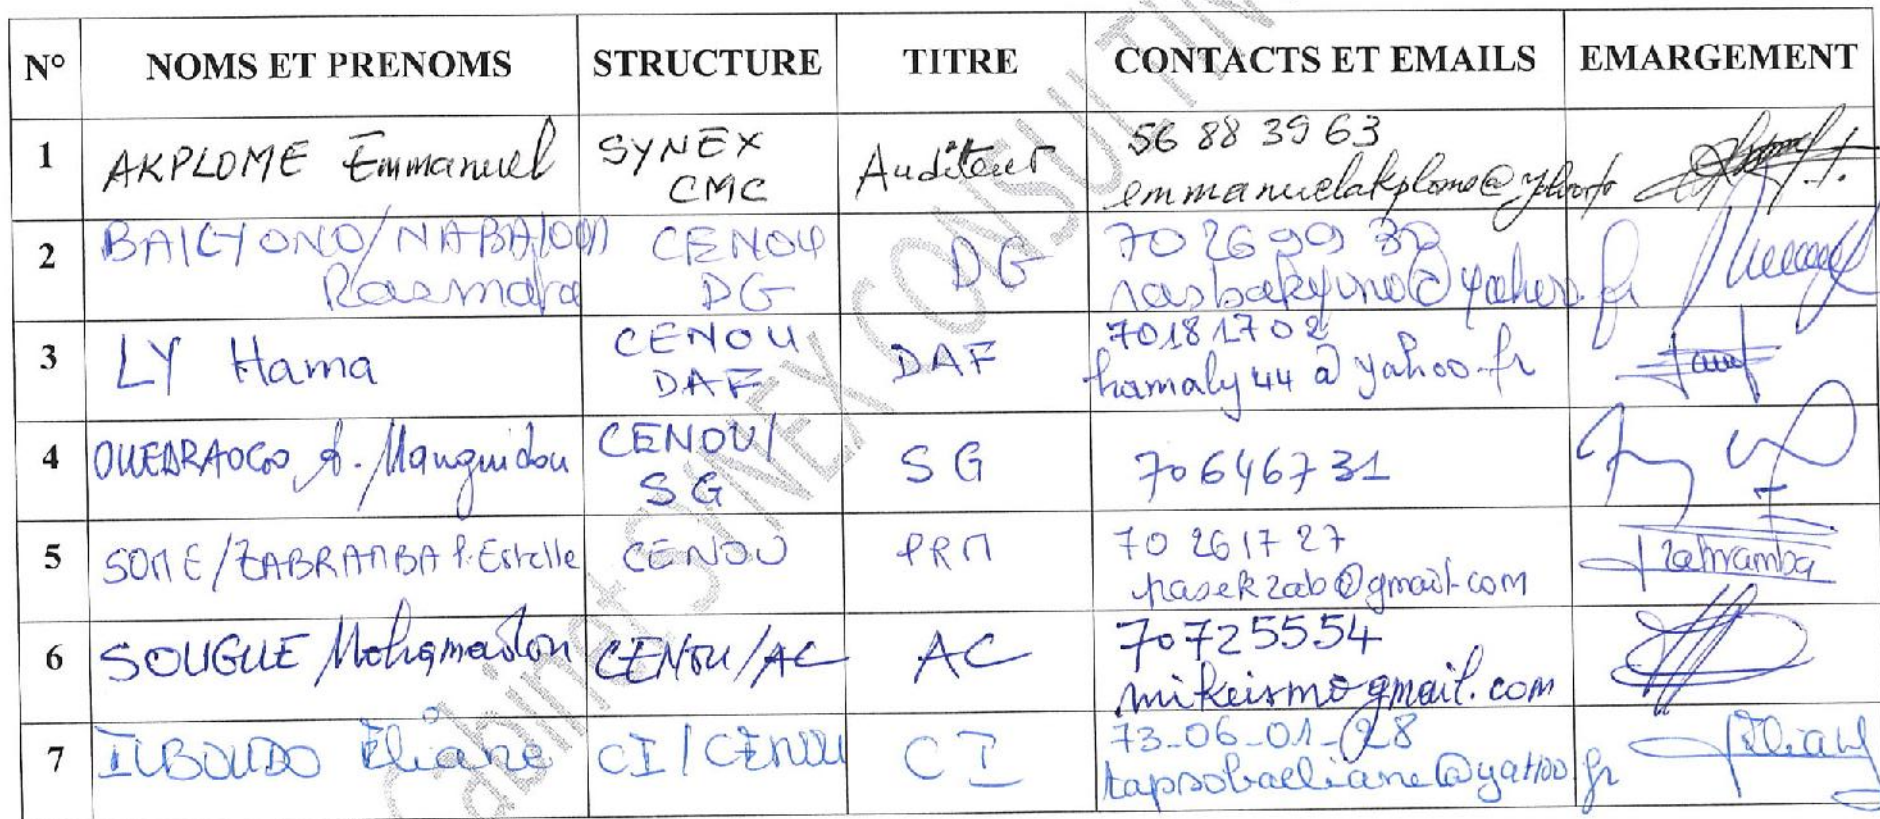 N° NOMS ET PRENOMS STRUCTURE TITRE CONTACTS ET EMAILS EMARGEMENT
1 AKPLOME Emmanuel SYNEX Auditeur 56 88 39 63
CMC emmanuelakplome@yahoo.fr
2 BAKYONO/NABALOUM CENOU DG 70 26 99 30
DG rasbakyono@yahoo.fr
3 LY Hama CENOU DAF 70181702
DAF hamaly44@yahoo.fr
4 OUEDRAOGO A. Manguidou CENOU/ SG 70646731
SG
5 SOME/ZABRAMBA P. Estelle CENOU PRM 70 26 17 27
pasekzab@gmail.com zabramba
6 SOUGUE Mohamadou CENOU/AC AC 70725554
mikeismo@gmail.com
7 ILBOUDO Eliane CI/CENOU CI 73-06-01-28
tapsobaeliane@yahoo.fr Eliane
Cabinet SYNEX CONSULTIN